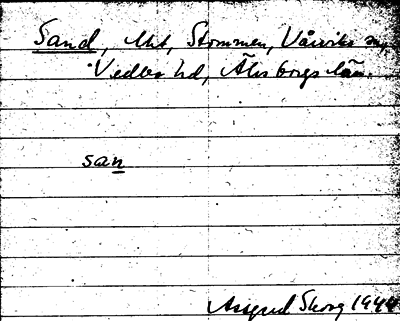 Sand, Mt, Stommen, Vårviks sn,
Vedbo hd, Älvsborgs län.
san
Astrid Skog 1944